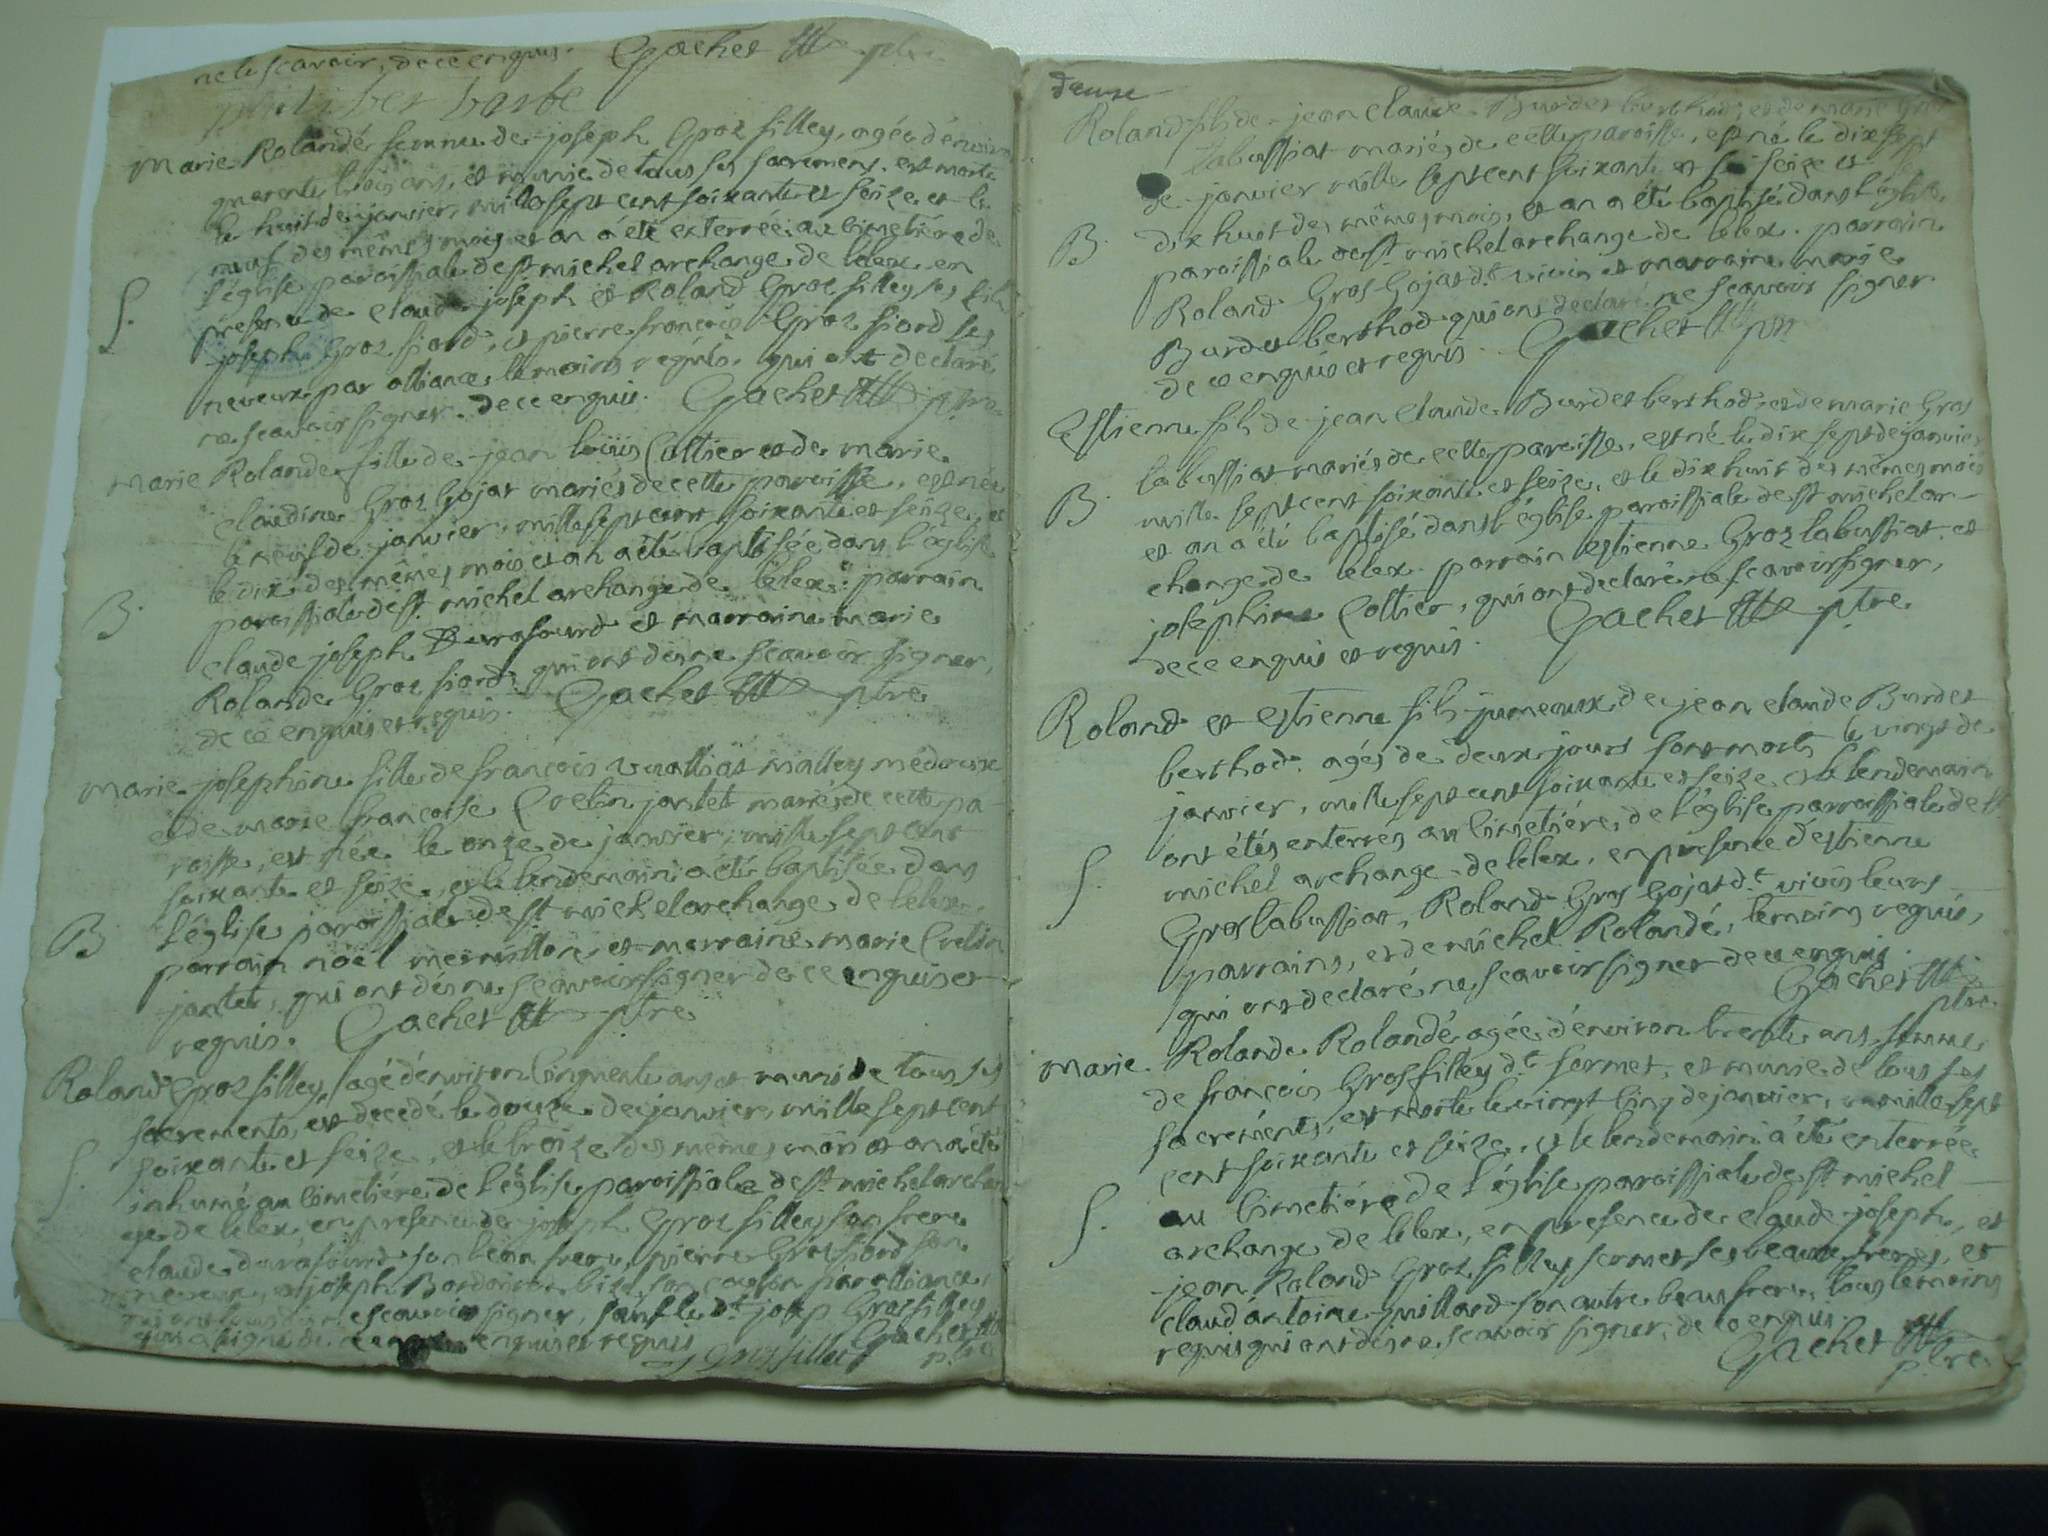 ne le scavoir, de ce enquis. Gachet ptre
philiber barbe
Marie Rolandé femme de joseph Groz filley, agée d'environ
quarente trois ans, et munie de tous ses sacremens, est morte
le huit de janvier, mille sept cent soixante et seize, et le
neuf des mêmes mois et an a été enterrée au cimetière de
l'église paroissiale de st michel archange de lelex en
S. présence de claude joseph et Roland Groz filley ses fils
joseph Groz fiord, et pierre françois Groz fiord ses
neveux par alliance, témoins requis, qui ont declaré
ne scavoir signer. de ce enquis. Gachet ptre
Marie Rolande fille de jean louis Coltier et de marie
claudine Groz Gojat mariés de cette paroisse, est née
le neuf de janvier, mille sept cent soixante et seize, et
le dix des mêmes mois et an a été baptisée dans l'église
B. paroissiale de st michel archange de lelex. parrain
claude joseph Durafourd et marraine marie
Rolande Groz fiord, qui ont dé ne scavoir signer,
de ce enquis et requis. Gachet ptre
Marie josephine fille de françois vualliat malley médoux
et de marie françoise Crelin jantet mariés de cette pa-
roisse, est née le onze de janvier, mille sept cent
soixante et seize, et le lendemain a été baptisée dans
B l'église paroissiale de st michel archange de lelex.
parrain noël mermillon, et marraine marie Crelin
jantet, qui ont dé ne scavoir signer de ce enquis et
requis. Gachet ptre
Roland Groz filley, agé d'environ cinquente ans et muni de tous ses
sacrements, est decedé le douze de janvier, mille sept cent
S. soixante et seize, et le treize des mêmes mois et an a été
inhumé au cimetière de l'église paroissiale de st michel archan
ge de lelex, en présence de joseph Groz filley son frere
claude durafourd son beau frere, pierre Groz fiord son
neveux, et joseph son cousin par alliance,
scavoir signer, sauf le dt josep Grosfilley
qui a signé de ce enquis et requis Gachet
j Grosfilley ptre
deuxe
Roland fils de jean claude Burdet berthod, et de marie Gros
labussiat mariés de cette paroisse, est né le dix sept
de janvier mille sept cent soixante et seize et le
B. dix huit des mêmes mois et an a été baptisé dans l'église
paroissiale de st michel archange de lelex. parrain
Roland Gros Gojat dt vivis et marraine marie
Burdet berthod qui ont declaré ne scavoir signer
de ce enquis et requis. Gachet ptre
Estienne fils de jean claude Burdet berthod, et de marie Gros
labussiat mariés de cette paroisse, est né le dix sept de janvier
B. mille sept cent soixante et seize, et le dix huit des mêmes mois
et an a été baptisé dans l'église paroissiale de st michel ar-
change de lelex. parrain estienne Groz labussiat. et
josephine Coltier, qui ont declaré ne scavoir signer,
de ce enquis et requis. Gachet ptre
Roland et Estienne fils jumeaux de jean claude Burdet
berthod. agés de deux jours sont morts le vingt de
janvier, mille sept cent soixante et seize, et le lendemain
ont étés enterres au cimetière, de l'église paroissiale de st
S. michel archange de lelex, en présence d'estienne
Gros labussiat, Roland Gros Gojat dt vivis leurs
parrains, et de michel Rolandé, temoins requis,
qui ont declaré ne scavoir signer de ce enquis.
Gachet ptre
Marie Rolande Rolandé agée d'environ trente ans, femme
de françois Grosfilley dt formet, et munie de tous ses
sacréments, est morte le vingt cinq de janvier, mille sept
cent soixante et seize, et le lendemain a été enterrée
S. au cimetière de l'église paroissiale de st michel
archange de lelex, en présence de claude joseph, et
jean Roland Groz filley formet ses beaux freres, et
claud antoine juillard son autre beau frere, tous temoins
requis qui ont dé ne scavoir signer, de ce enquis.
Gachet ptre